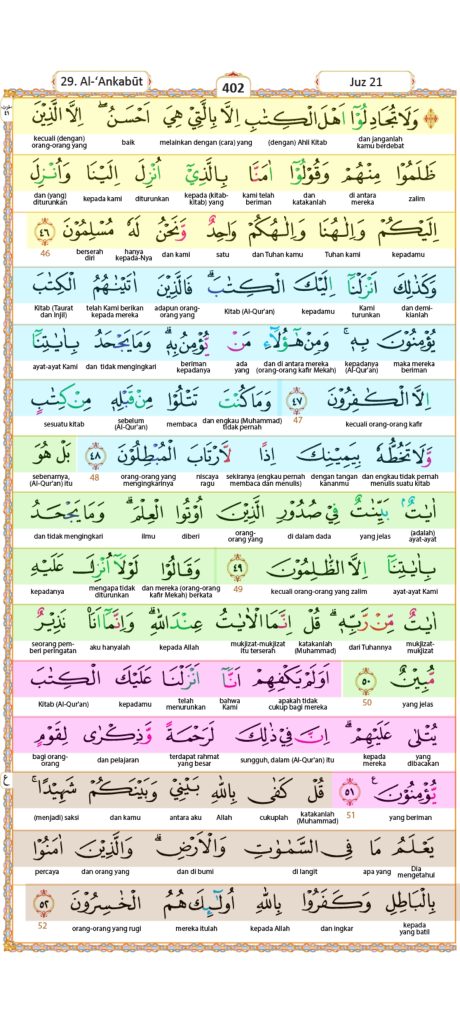 29. Al-‘Ankabūt
402
Juz 21
وَلَا تُجَادِلُوْٓا اَهْلَ الْكِتٰبِ اِلَّا بِالَّتِيْ هِيَ اَحْسَنُۖ اِلَّا الَّذِيْنَ
dan janganlah kamu berdebat (dengan) Ahli Kitab melainkan dengan (cara) yang baik kecuali (dengan) orang-orang yang
ظَلَمُوْا مِنْهُمْ وَقُوْلُوْٓا اٰمَنَّا بِالَّذِيْٓ اُنْزِلَ اِلَيْنَا وَاُنْزِلَ
zalim di antara mereka dan katakanlah kami telah beriman kepada (kitab-kitab) yang diturunkan kepada kami dan (yang) diturunkan
اِلَيْكُمْ وَاِلٰهُنَا وَاِلٰهُكُمْ وَاحِدٌ وَّنَحْنُ لَهٗ مُسْلِمُوْنَ ٤٦
kepadamu Tuhan kami dan Tuhan kamu satu dan kami hanya kepada-Nya berserah diri 46
وَكَذٰلِكَ اَنْزَلْنَآ اِلَيْكَ الْكِتٰبَۗ فَالَّذِيْنَ اٰتَيْنٰهُمُ الْكِتٰبَ
dan demi-kianlah Kami turunkan kepadamu Kitab (Al-Qur'an) adapun orang-orang yang telah Kami berikan kepada mereka Kitab (Taurat dan Injil)
يُؤْمِنُوْنَ بِهٖۚ وَمِنْ هٰٓؤُلَاۤءِ مَنْ يُّؤْمِنُ بِهٖۗ وَمَا يَجْحَدُ بِاٰيٰتِنَآ
maka mereka beriman kepadanya (Al-Qur'an) dan di antara mereka (orang-orang kafir Mekah) ada yang beriman kepadanya dan tidak mengingkari ayat-ayat Kami
اِلَّا الْكٰفِرُوْنَ ٤٧ وَمَا كُنْتَ تَتْلُوْا مِنْ قَبْلِهٖ مِنْ كِتٰبٍ
kecuali orang-orang kafir 47 dan engkau (Muhammad) tidak pernah membaca sebelum (Al-Qur'an) sesuatu kitab
وَّلَا تَخُطُّهٗ بِيَمِيْنِكَ اِذًا لَّارْتَابَ الْمُبْطِلُوْنَ ٤٨ بَلْ هُوَ
dan engkau tidak pernah menulis suatu kitab dengan tangan kananmu sekiranya (engkau pernah membaca dan menulis) niscaya ragu orang-orang yang mengingkarinya 48 sebenarnya, (Al-Qur'an) itu
اٰيٰتٌۢ بَيِّنٰتٌ فِيْ صُدُوْرِ الَّذِيْنَ اُوْتُوا الْعِلْمَۗ وَمَا يَجْحَدُ
(adalah) ayat-ayat yang jelas di dalam dada orang-orang yang diberi ilmu dan tidak mengingkari
بِاٰيٰتِنَآ اِلَّا الظّٰلِمُوْنَ ٤٩ وَقَالُوْا لَوْلَآ اُنْزِلَ عَلَيْهِ
ayat-ayat Kami kecuali orang-orang yang zalim 49 dan mereka (orang-orang kafir Mekah) berkata mengapa tidak diturunkan kepadanya
اٰيٰتٌ مِّنْ رَّبِّهٖۗ قُلْ اِنَّمَا الْاٰيٰتُ عِنْدَ اللّٰهِۗ وَاِنَّمَآ اَنَا۠ نَذِيْرٌ
mukjizat-mukjizat dari Tuhannya katakanlah (Muhammad) mukjizat-mukjizat itu terserah kepada Allah aku hanyalah seorang pem-beri peringatan
مُّبِيْنٌ ٥٠ اَوَلَمْ يَكْفِهِمْ اَنَّآ اَنْزَلْنَا عَلَيْكَ الْكِتٰبَ
yang jelas 50 apakah tidak cukup bagi mereka bahwa Kami telah menurunkan kepadamu Kitab (Al-Qur'an)
يُتْلٰى عَلَيْهِمْۗ اِنَّ فِيْ ذٰلِكَ لَرَحْمَةً وَّذِكْرٰى لِقَوْمٍ
yang dibacakan kepada mereka sungguh, dalam (Al-Qur'an) itu terdapat rahmat yang besar dan pelajaran bagi orang-orang
يُّؤْمِنُوْنَ ٥١ قُلْ كَفٰى بِاللّٰهِ بَيْنِيْ وَبَيْنَكُمْ شَهِيْدًاۚ
yang beriman 51 katakanlah (Muhammad) cukuplah Allah antara aku dan kamu (menjadi) saksi
يَعْلَمُ مَا فِى السَّمٰوٰتِ وَالْاَرْضِۗ وَالَّذِيْنَ اٰمَنُوْا
Dia mengetahui apa yang di langit dan di bumi dan orang yang percaya
بِالْبَاطِلِ وَكَفَرُوْا بِاللّٰهِ اُولٰۤىِٕكَ هُمُ الْخٰسِرُوْنَ ٥٢
kepada yang batil dan ingkar kepada Allah mereka itulah orang-orang yang rugi 52
ع